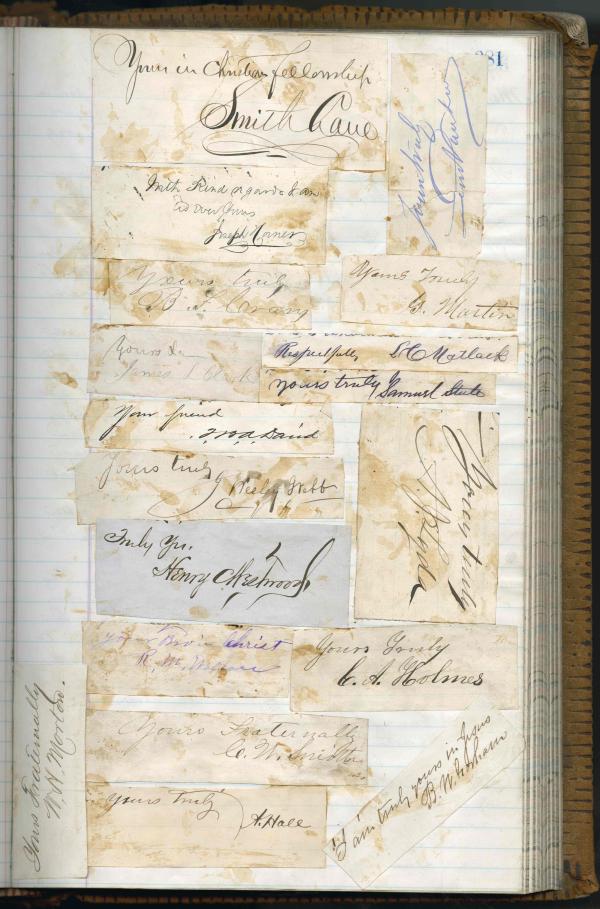 281
Yours in Christian fellowship
Smith Cane
Yours truly
With Kind regards I am
as ever Yours
Joseph Horner
Yours truly
B. F. Crary
Yours Truly
G. Martin
Yours &c
James
Respectfully, L C Matlack
Yours truly Samuel Stute
Your friend
Yours truly
Wesley Webb
Yours truly
Truly Yrs.
Henry
Yours Bro in Christ
R. M.
Yours Truly
C. A. Holmes
Yours Fraternally
W. H. Morton.
Yours Fraternally
C. W. Smith
I am truly yours in Jesus
B. W.
Yours truly
A. Hall